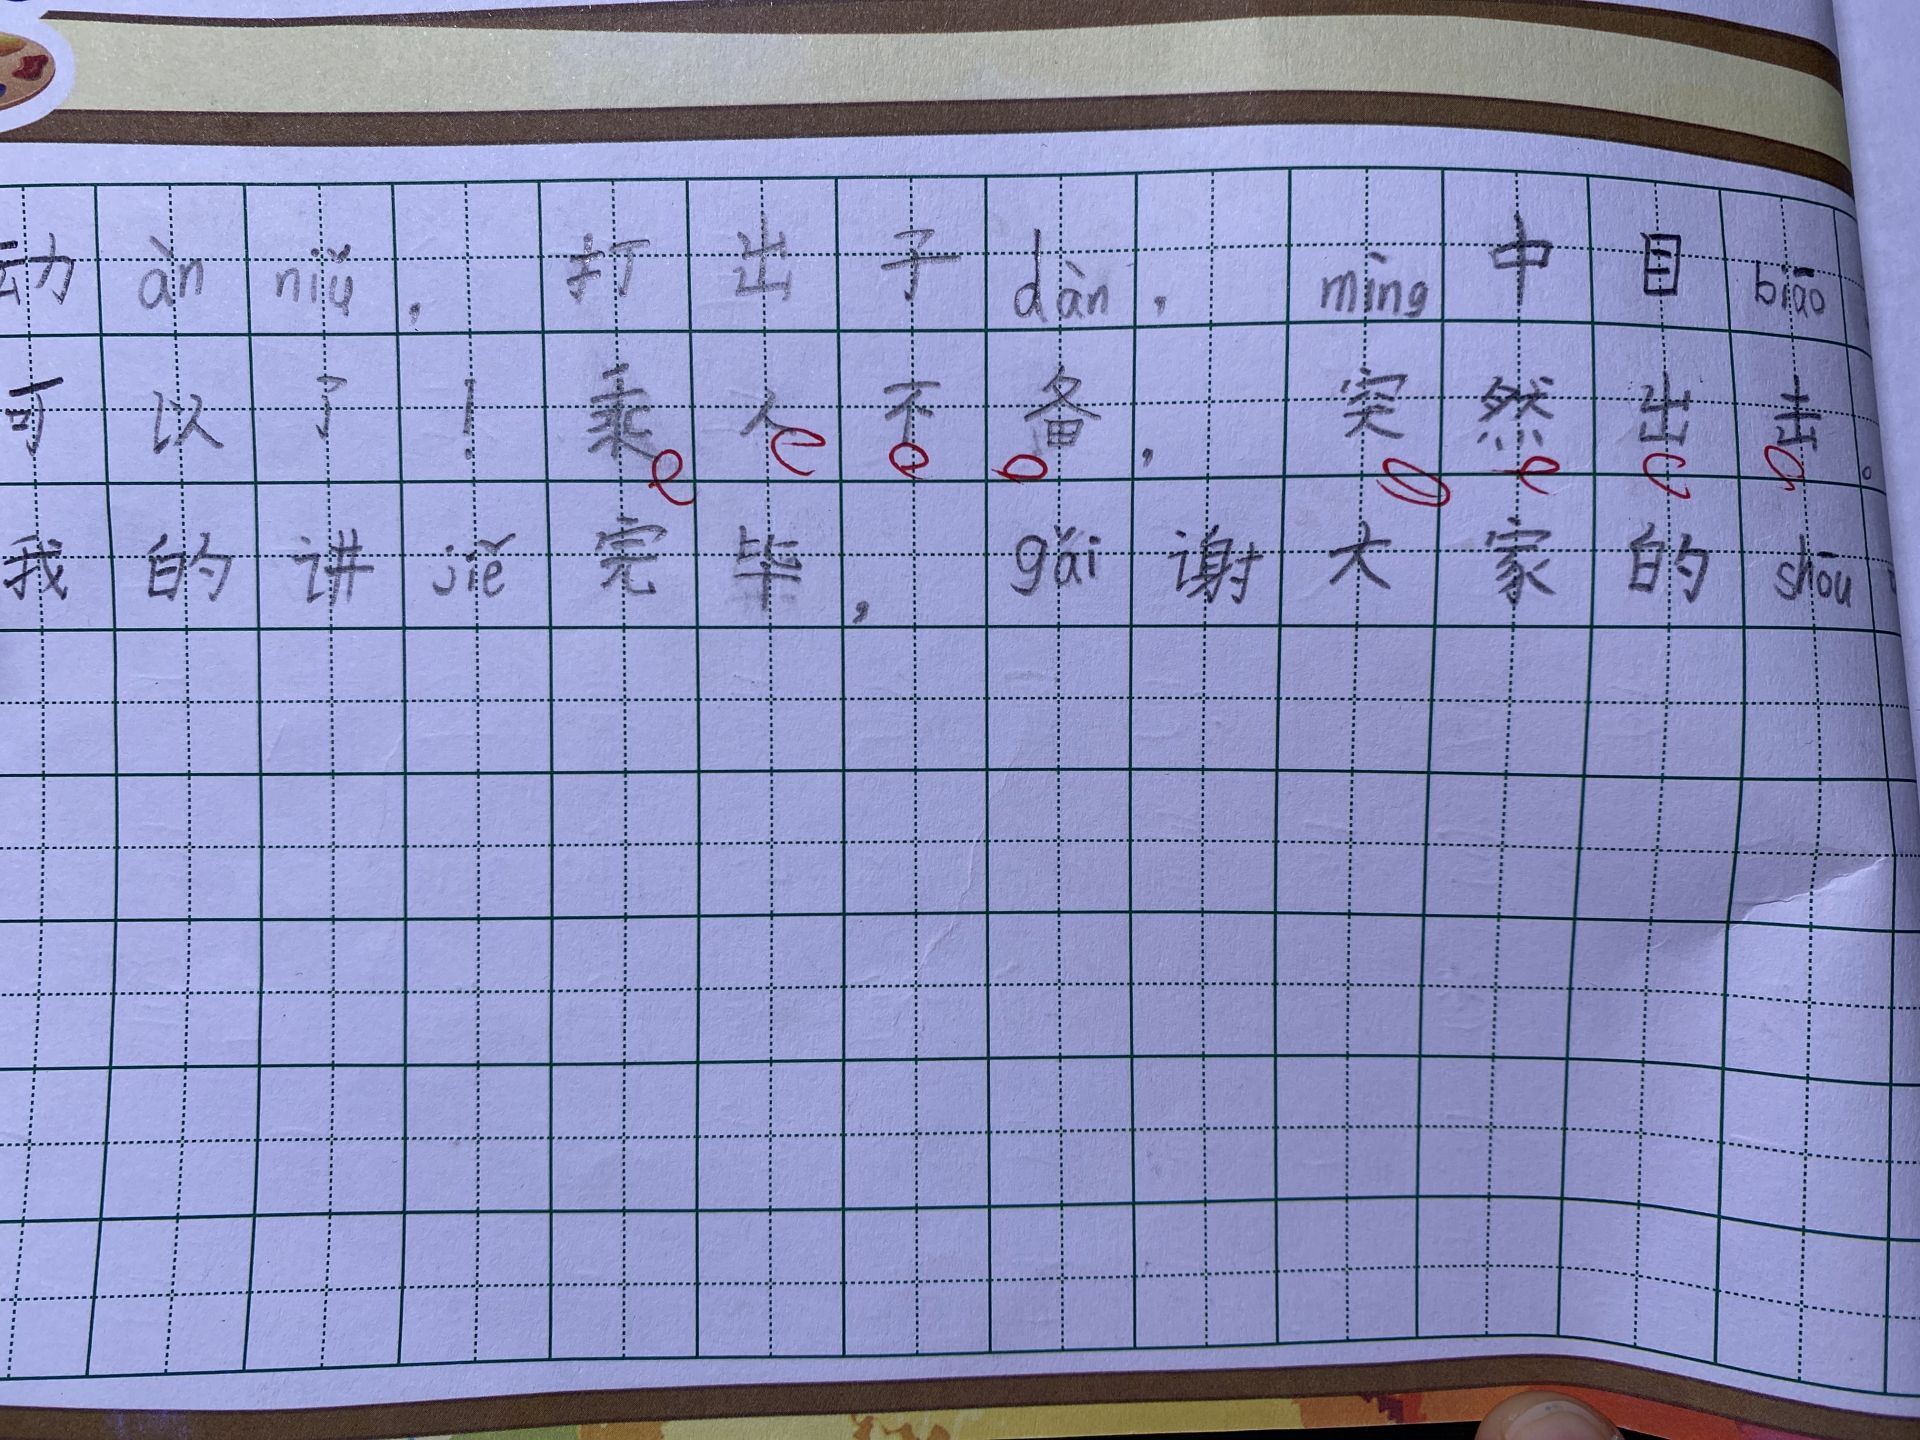 动àn niǔ，打出子dàn，mìng中目biāo
可以了！乘人不备，突然出击。
我的讲jiě完毕，gǎi谢大家的shōu